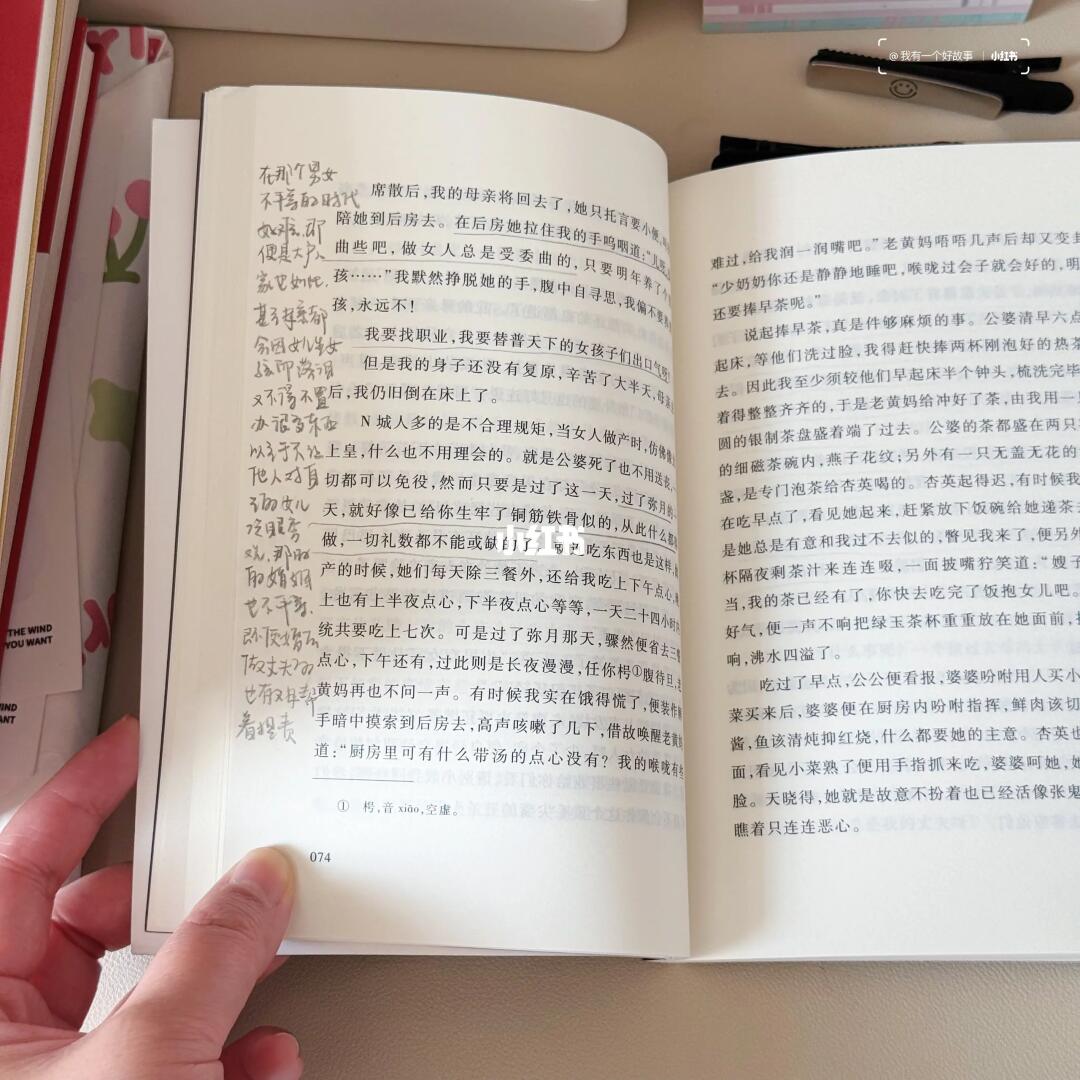 @ 我有一个好故事 | 小红书
在那个男女
不平等的时代
如难,即
便是大户人
家也如此,
甚至母亲都
会因女儿生女
孩即落泪
又不得不置
办很多东西
以至于不让
他人对自
己的女儿
冷眼
的婚姻
也不平等,
做丈夫的
也有
着
席散后,我的母亲将回去了,她只托言要小便,
陪她到后房去。在后房她拉住我的手呜咽道:“儿呀,
曲些吧,做女人总是受委曲的,只要明年养了个
孩……”我默然挣脱她的手,腹中自寻思,我偏不要养
孩,永远不!
我要找职业,我要替普天下的女孩子们出口气呀!
但是我的身子还没有复原,辛苦了大半天,母亲
后,我仍旧倒在床上了。
N 城人多的是不合理规矩,当女人做产时,仿佛像
上皇,什么也不用理会的。就是公婆死了也不用送丧,
切都可以免役,然而只要是过了这一天,过了弥月的
天,就好像已给你生牢了铜筋铁骨似的,从此什么都
做,一切礼数都不能或缺的了。吃东西也是这样;
产的时候,她们每天除三餐外,还给我吃上下午点心,
上也有上半夜点心,下半夜点心等等,一天二十四小时内
统共要吃上七次。可是过了弥月那天,骤然便省去三
点心,下午还有,过此则是长夜漫漫,任你枵①腹待旦,
黄妈再也不问一声。有时候我实在饿得慌了,便装作
手暗中摸索到后房去,高声咳嗽了几下,借故唤醒老黄妈
道:“厨房里可有什么带汤的点心没有?我的喉咙有些
① 枵,音 xiāo,空虚。
074
小红书
难过,给我润一润嘴吧。”老黄妈唔唔几声后却又变卦
“少奶奶你还是静静地睡吧,喉咙过会子就会好的,明
还要捧早茶呢。”
说起捧早茶,真是件够麻烦的事。公婆清早六点
起床,等他们洗过脸,我得赶快捧两杯刚泡好的热茶
去。因此我至少须较他们早起床半个钟头,梳洗完毕
着得整整齐齐的,于是老黄妈给冲好了茶,由我用一
圆的银制茶盘盛着端了过去。公婆的茶都盛在两只
的细磁茶碗内,燕子花纹;另外有一只无盖无花的
盏,是专门泡茶给杏英喝的。杏英起得迟,有时候我
在吃早点了,看见她起来,赶紧放下饭碗给她递茶
是她总是有意和我过不去似的,瞥见我来了,便另外
杯隔夜剩茶汁来连连啜,一面披嘴狞笑道:“嫂子
当,我的茶已经有了,你快去吃完了饭抱女儿吧。
好气,便一声不响把绿玉茶杯重重放在她面前,
响,沸水四溢了。
吃过了早点,公公便看报,婆婆吩咐用人买小
菜买来后,婆婆便在厨房内吩咐指挥,鲜肉该切
酱,鱼该清炖抑红烧,什么都要她的主意。杏英也
面,看见小菜熟了便用手指抓来吃,婆婆呵她,她
脸。天晓得,她就是故意不扮着也已经活像张鬼
瞧着只连连恶心。
THE WIND
YOU WANT
WIND
ANT